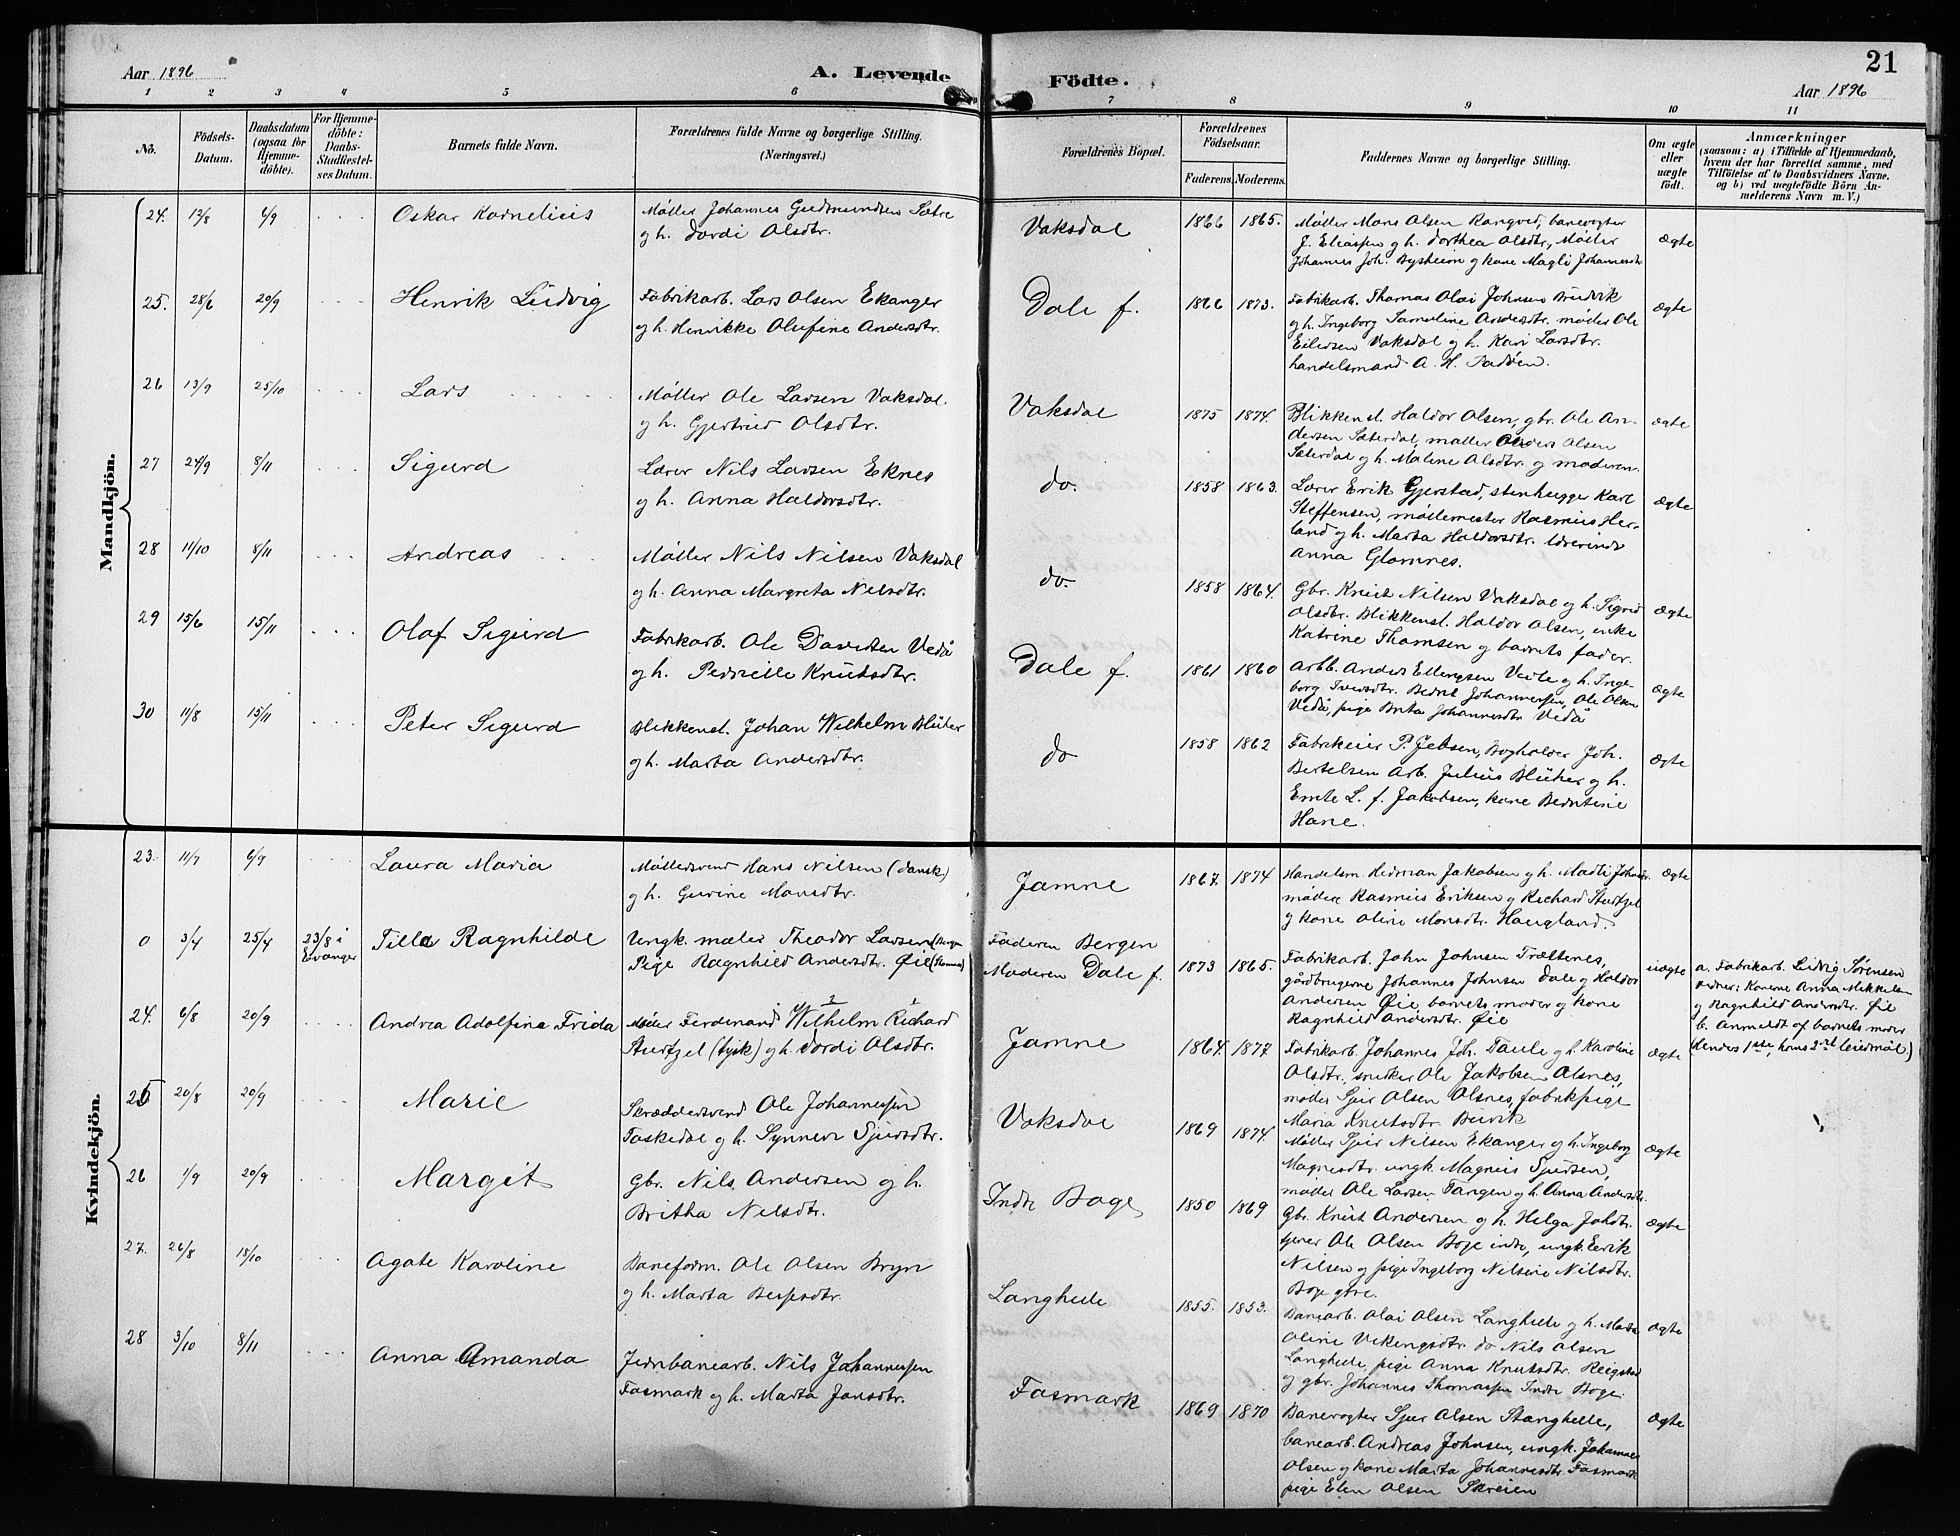 21
Aar 1896 A. Levende Födte. Aar 1896
1 2 3 4 5 6 7 8 9 10 11
No.
Födsels-
Datum.
Daabsdatum
(ogsaa for
Hjemme-
döbte).
For Hjemme-
döbte:
Daabs-
Stadfæstel-
ses Datum.
Barnets fulde Navn.
Forældrenes fulde Navne og borgerlige Stilling.
(Næringsvei.)
Forældrenes Bopæl.
Forældrenes
Födselsaar.
Faderens. Moderens.
Faddernes Navne og borgerlige Stilling.
Om ægte
eller
uægte
födt.
Anmærkninger
(saasom: a) i Tilfælde af Hjemmedaab,
hvem der har forrettet samme, med
Tilföielse af to Daabsvidners Navne.
og b) ved uægtefödte Börn An-
melderens Navn m. V.)
Mandkjön.
24. 12/8 6/9 Oskar Kornelius
Møller Johannes Gudmundsen Sætre
og h. Dordi Olsdtr.
Vaksdal 1866 1865.
Møller Mons Olsen Rangved, banevogter
J. Eliassen og h. Dorthea Olsdtr., Møller
Johannes Joh. Bysheim og kone Magli Johannesdtr
ægte
25. 28/6 20/9 Henrik Ludvig
Fabrikarb. Lars Olsen Ekanger
og h. Henrikke Olufine Andersdtr.
Dale f. 1866 1873.
Fabrikarb. Thomas Olai Johnsen Budvik
og h. Ingeborg Samuline Andersdtr. møller Ole
Eilertsen Vaksdal og h. Kari Larsdtr.
handelsmand A. H.
ægte
26 13/9 25/10 Lars
Møller Ole Larsen Vaksdal
og h. Gjertrud Olsdtr.
Vaksdal 1875 1874.
Blikkensl. Haldor Olsen, gbr. Ole An-
dersen Sæterdal, møller Anders Olsen
Sæterdal og h. Maline Olsdtr. og moderen.
ægte
27 24/9 8/11 Sigurd
Lærer Nils Larsen Eknes
og h. Anna Haldorsdtr.
do. 1858 1863.
Lærer Erik Gjerstad, stenhugger Karl
Steffensen, møllemester Rasmus Her-
land og h. Marta Haldorsdtr. lærerinde
Anna Glomnes.
ægte
28 11/10 8/11 Andreas
Møller Nils Nilsen Vaksdal
og h. Anna Margreta Nilsdtr.
do. 1858 1864.
Gbr. Knut Nilsen Vaksdal og h. Sigrid
Olsdtr. Blikkensl. Haldor Olsen, enke
Katrine Thomsen og barnets fader.
ægte
29 15/6 15/11 Olaf Sigurd
Fabrikarb. Ole Davidsen Vedå
og h. Pernille Knutsdtr.
Dale f. 1861 1860
Arbb. Anders Ellengsen Veele og h. Inge-
borg Iversdtr. Bernt Johannessen, Ole Olsen
Vedå, pige Brita Johannesdtr Vedå
ægte
30 11/8 15/11 Peter Sigurd
Blikkensl. Johan Wilhelm Blüher
og h. Marta Andersdtr.
do 1858 1862
Fabrikeier P. Jebsen, Bogholder Joh.
Bertelsen Arb. Julius Blüher og h.
Emte L. f. Jakobsen, kone Berntine
Hane.
ægte
Kvindekjön.
23. 11/7 6/9 Laura Maria
Møllersvend Hans Nilsen (dansk)
og h. Gurine Monsdtr.
Jamne 1867. 1874
Handelsm. Herman Jakobsen og h. Madli Johsdtr.
møllere Rasmus Eriksen og Richard Sturtzel
og kone Oline Monsdtr. Haugland.
ægte
0 3/4 25/4 23/8 i
Evanger
Tilla Ragnhilde
Ungk. maler Theodor Larsen (Bergen
Pige Ragnhild Andersdtr. Øie
Faderen Bergen
Moderen Dale f. 1873 1865.
Fabrikarb. John Johnsen Trættenes,
gårdbrugerne Johannes Johnsen Dale og Haldor
Andersen Øie, barnets moder og kone
Ragnhild Andersdtr. Øie
uægte
a. Fabrikarb. Ludvig Sørensen
vidner: Konerne Anna Mikkels
og Ragnhild Andersdtr. Øie
b. Anmeldt af barnets moder
(hendes 1ste, hans 2det leiermål.)
24. 6/8 20/9 Andrea Adolfina Frida
Møller Ferdinand Wilhelm Richard
Sturtzel (tysk) og h. Dordi Olsdtr.
Jamne 1864. 1877.
Fabrikarb. Johannes Joh. Daule og h. Karoline
Olsdtr. snedker Ole Jakobsen Olsnes,
møller Sjur Olsen Olsnes, fabrikpige
Maria Knutsdtr. Burvik
ægte
25 20/8 20/9 Marie
Skræddersvend Ole Johannessen
Faskedal og h. Synneve Sjursdtr.
Vaksdal 1869 1874.
Møller Sjur Nilsen Ekanger og h. Ingeborg
Magnesdtr. ungk. Magnus Sjursen,
møller Ole Larsen Tangen og h. Anna Andersdtr.
ægte
26 1/9 20/9 Margit
Gbr. Nils Andersen og h.
Britha Nilsdtr.
Indre Boge 1850 1869
Gbr. Knut Andersen og h. Helga Johsdtr.
tjener Ole Olsen Boge indre, ungk. Eerik
Nilsen og pige Ingeborg Nilsine Nilsdtr.
Boge gbre.
ægte
27. 26/8 18/10 Agate Karoline
Baneform. Ole Olsen Bryn
og h. Marta Bergesdtr.
Langhede 1855. 1853.
Banearb. Olai Olsen Langhede og h. Marta
Oline Vikingsdtr. do Nils Olsen
Langhede, pige Anna Knutsdtr. Reigstad
og gbr. Johannes Thomassen Indre Boge.
ægte
28 3/10 8/11 Anna Amanda
Jernbanearb. Nils Johannessen
Fosmark og h. Marta Jonsdtr.
Fosmark 1869 1870
Banevogter Sjur Olsen Stanghelle,
banearb. Andreas Johnsen, ungk. Johannes
Olsen og kone Marta Johannesdtr. Fosmark
pige Elen Olsen Skreien
ægte